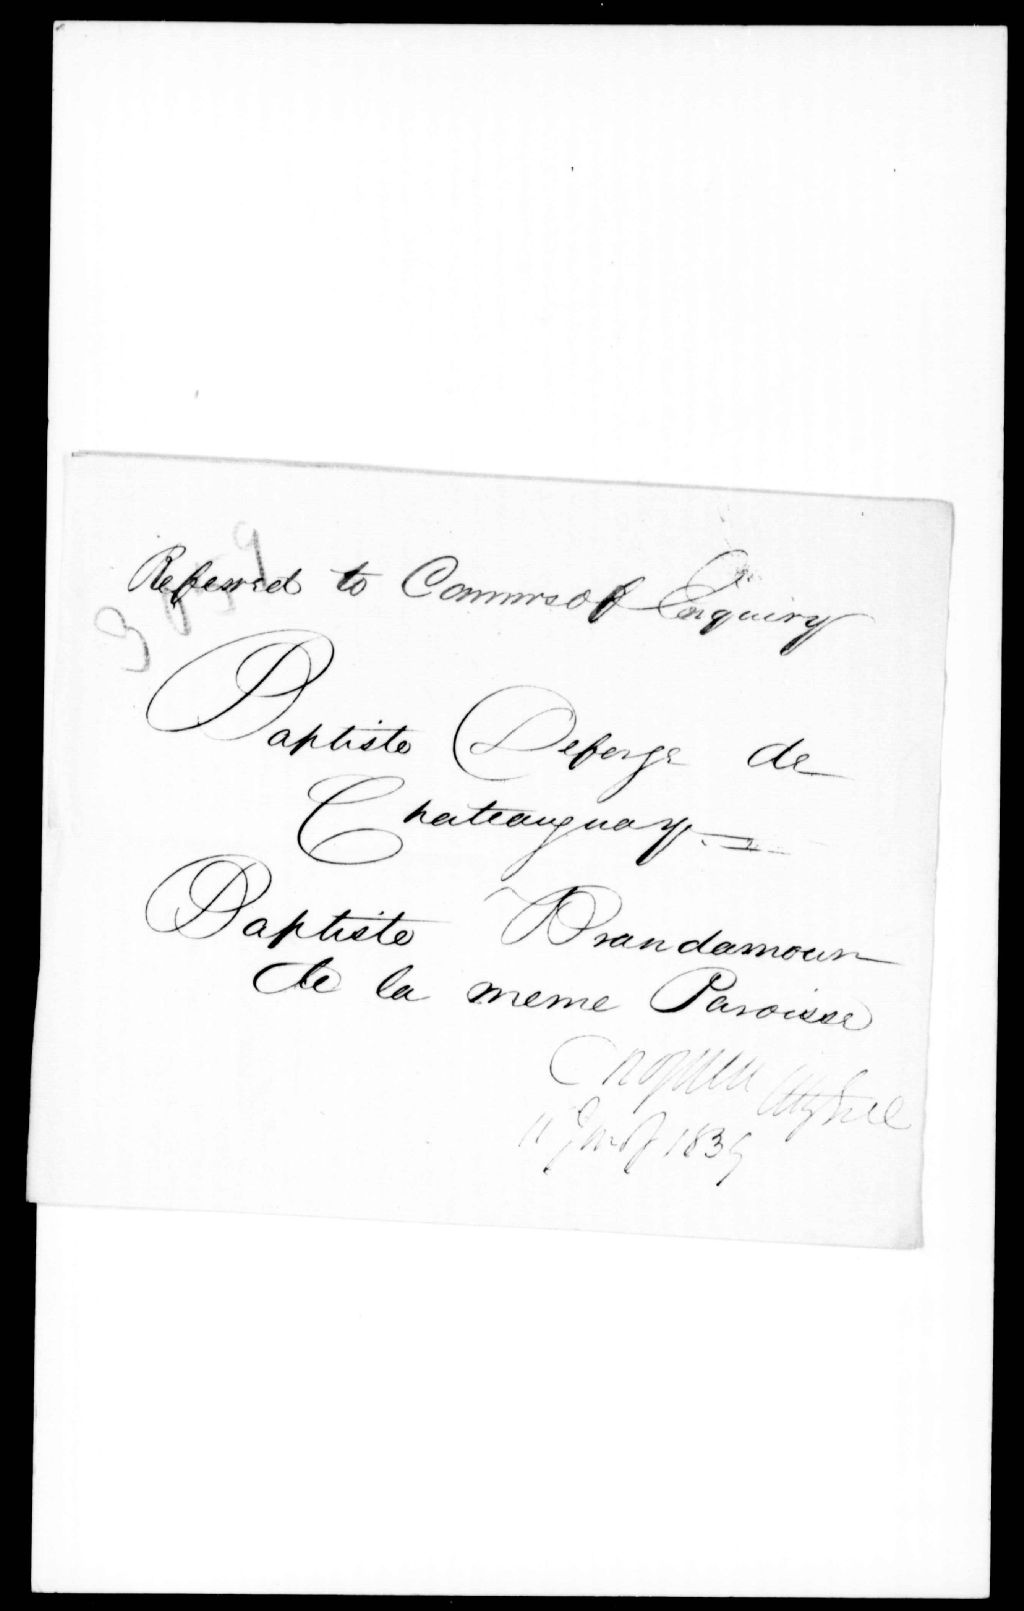 Referred to Commrs of Enquiry
Baptiste Deforge de
Chateauguay
Baptiste Brandamour
de la meme Paroisse
C R Ogden Atty Genl
11 Jany 1839